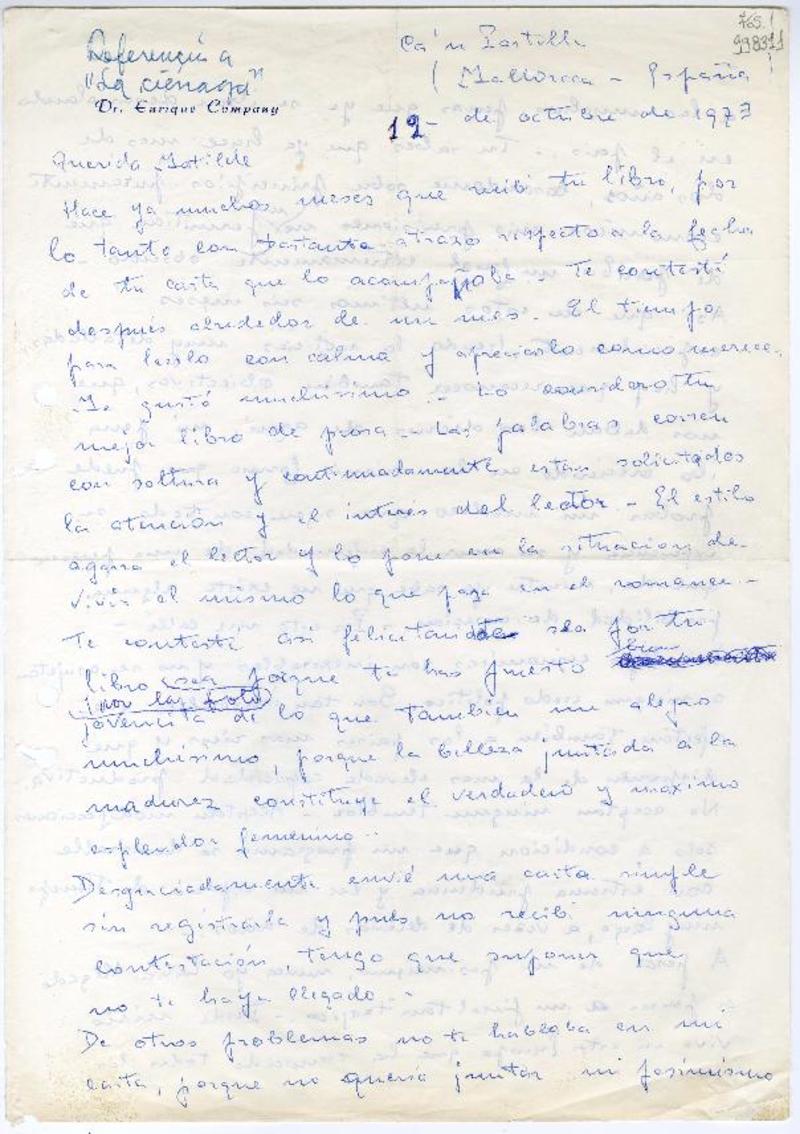 Referencia a
"La ciénaga"
Dr. Enrique Company
Ca'n Pastilla
(Mallorca - España)
998311
12 - de octubre de 1973
Querida Matilde
Hace ya muchos meses que recibí tu libro, por
lo tanto con bastante atrazo respecto a la fecha
de tu carta que lo acompañaba - Te contesté
después alrededor de un mes - El tiempo
para leerlo con calma y apreciarlo como merece.
Me gustó muchísimo - Lo considero tu
mejor libro de prosa - Las palabras corren
con soltura y continuadamente estan solicitados
la atención y el interés del lector - El estilo
agarra el lector y lo pone en la situacion de
vivir el mismo lo que pasa en el romance -
Te contesté asi felicitandote sea por tu
libro sea porque te has puesto bien
(por las foto)
jovencita de lo que tambien me alegro
muchísimo, porque la belleza juntada a la
madurez constituye el verdadero y maximo
esplendor femenino -
Desgraciadamente envié una carta simple
sin registrarla y pués no recibi ninguna
contestación, tengo que suponer que
no te haya llegado -
De otros problemas no te hablaba en mi
carta, porque no queria juntar mi pesimismo